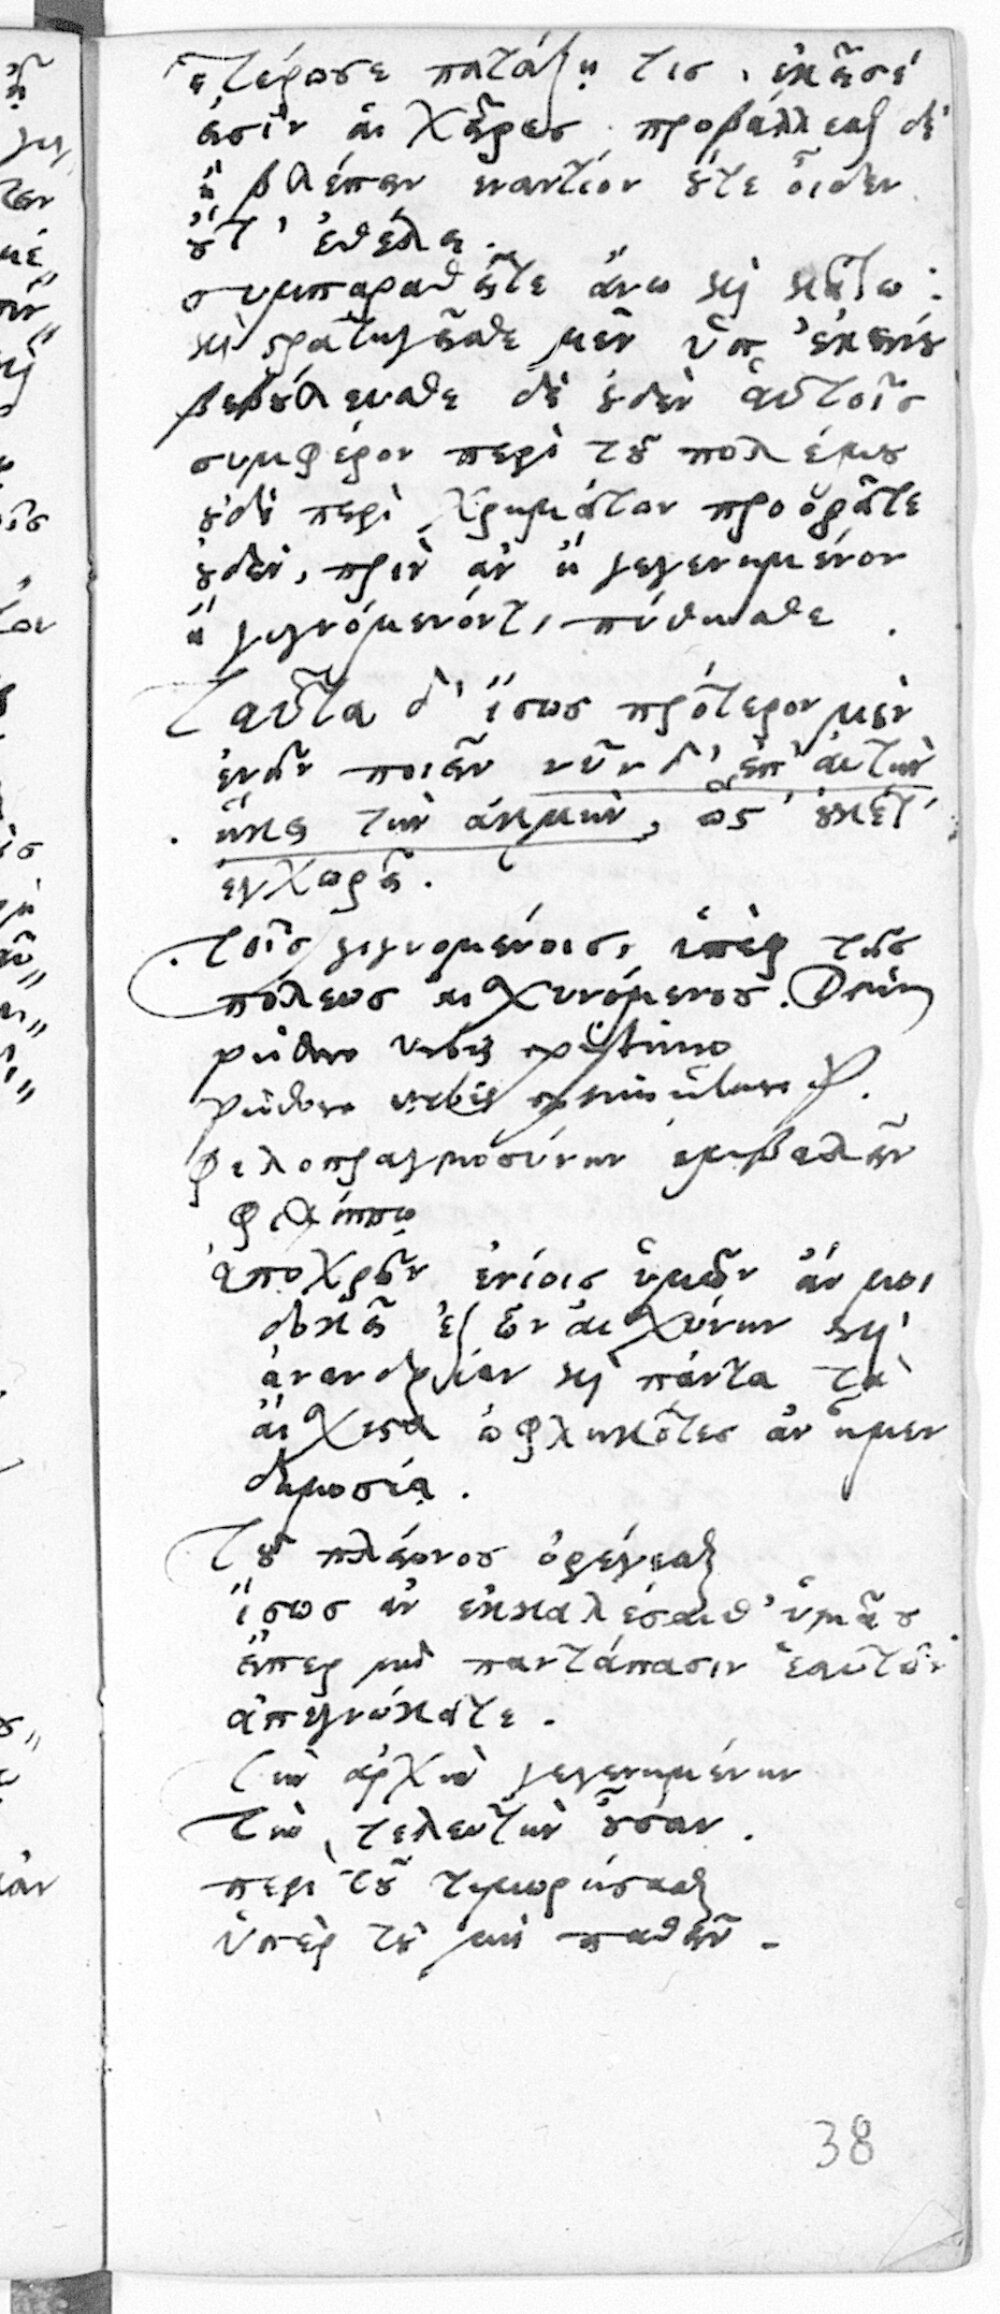 ἑτέρωσε πατάξῃ τις, ἐκεῖσέ
εἰσὶν αἱ χεῖρες. προβάλλεσθαι δὲ
ἢ βλέπειν ἐναντίον οὔτε οἶδεν
οὔτ' ἐθέλει.
συμπαραθεῖτε ἄνω καὶ κάτω.
καὶ στρατηγεῖσθε μὲν ὑπ' ἐκείνου
βεβούλευσθε δὲ οὐδὲν αὐτοῖς
συμφέρον περὶ τοῦ πολέμου
οὐδὲ περὶ χρημάτων προορᾶτε
οὐδέν, πρὶν ἂν ἢ γεγενημένον
ἢ γιγνόμενόν τι πύθησθε.
Ταῦτα δ' ἴσως πρότερον μὲν
ἐνῆν ποιεῖν νῦν δ' ἐπ' αὐτὴν
ἥκει τὴν ἀκμήν, ὥστ' οὐκέτ'
ἐγχωρεῖ.
τοῖς γιγνομένοις, ὑπὲρ τῆς
πόλεως αἰσχυνόμενος.
φιλοπραγμοσύνην ἐμβαλεῖν
φιλίππῳ
ἀποχρῆν ἐνίοις ὑμῶν ἄν μοι
δοκεῖ ἐξ ὧν αἰσχύνην καὶ
ἀνανδρίαν καὶ πάντα τὰ
αἴσχιστα ὠφληκότες ἂν ἦμεν
δημοσίᾳ.
Τοῦ πλείονος ὀρέγεσθαι
ἴσως ἂν ἐκκαλέσαιθ' ὑμᾶς
εἴπερ μὴ παντάπασιν ἑαυτῶν
ἀπεγνώκατε.
Τὴν ἀρχὴν γεγενημένην
τὴν τελευτὴν οὖσαν.
περὶ τοῦ τιμωρήσασθαι
ὑπὲρ τοῦ μὴ παθεῖν.
38